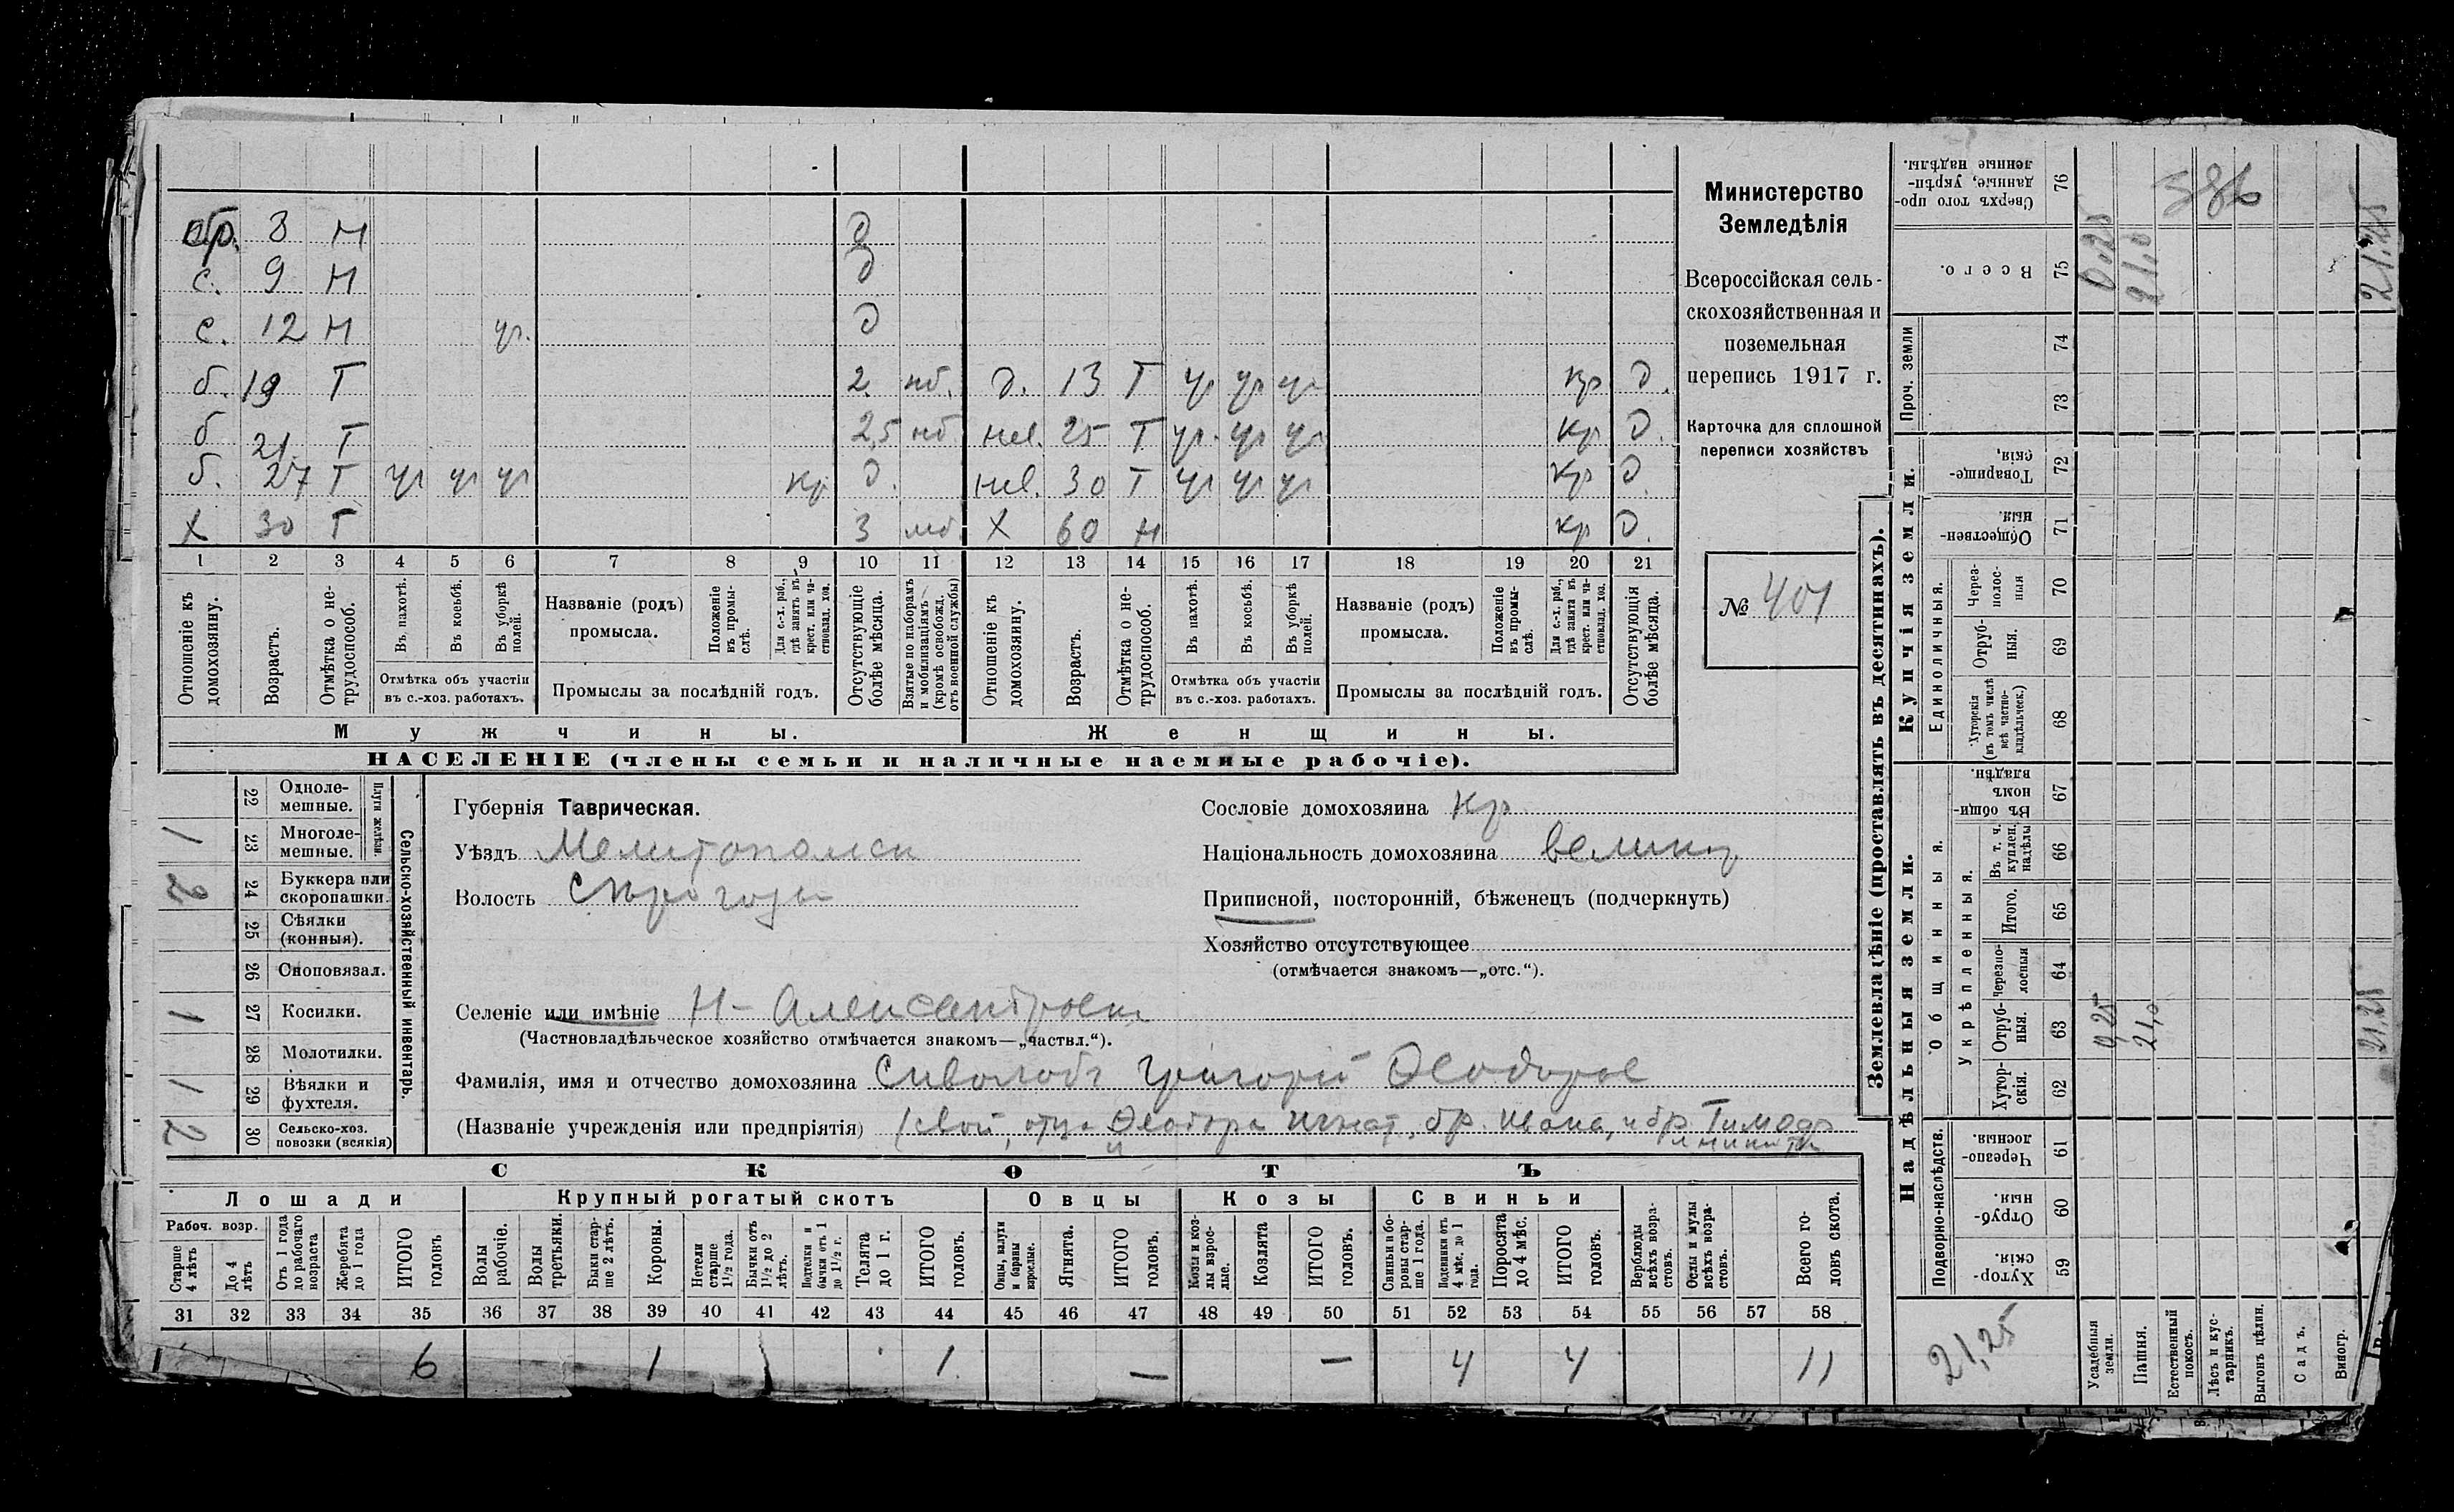 обр. 8 Н д
с. 9 Н д
с. 12 Н уч. д
б. 19 Т 2 мб. д. 13 Т уч уч уч кр д.
б 21 Т 2,5 мб нев. 25 Т уч. уч уч кр д.
б. 27 Т уч уч уч кр д. нев. 30 Т уч уч уч кр д.
X 30 Т 3 мб. X 60 Н кр д.
1 2 3 4 5 6 7 8 9 10 11 12 13 14 15 16 17 18 19 20 21
Отношеніе къ домохозяину.
Возрастъ.
Отмѣтка о не-трудоспособ.
Въ пахотѣ.
Въ косьбѣ.
Въ уборкѣ полей.
Отмѣтка объ участіи
въ с.-хоз. работахъ.
Названіе (родъ)
промысла.
Положеніе въ промы-слѣ.
Для с.-х. раб., гдѣ занятъ въ крест. или ча-стновлад. хоз.
Промыслы за послѣдній годъ.
Отсутствующіе болѣе мѣсяца.
Взятые по наборамъ и мобилизаціямъ (кромѣ освобожд. отъ военной службы)
Отношеніе къ домохозяину.
Возрастъ.
Отмѣтка о не-трудоспособ.
Въ пахотѣ.
Въ косьбѣ.
Въ уборкѣ полей.
Отмѣтка объ участіи
въ с.-хоз. работахъ.
Названіе (родъ)
промысла.
Положеніе въ промы-слѣ.
Для с.-х. раб., гдѣ занята въ крест. или ча-стновлад. хоз.
Промыслы за послѣдній годъ.
Отсутствующія болѣе мѣсяца.
Мужчины. Женщины.
НАСЕЛЕНІЕ (члены семьи и наличные наемные рабочіе).
Министерство
Земледѣлія
Всероссійская сель-
скохозяйственная и
поземельная
перепись 1917 г.
Карточка для сплошной
переписи хозяйствъ
№ 401
22 Одноле-мешные.
1 23 Многоле-мешные.
Плуги желѣзн.
2 24 Буккера или скоропашки.
25 Сѣялки (конныя).
26 Сноповязал.
1 27 Косилки.
28 Молотилки.
1 29 Вѣялки и фухтеля.
2 30 Сельско-хоз. повозки (всякія)
Сельско-хозяйственный инвентарь.
Губернія Таврическая.
Уѣздъ Мелитопольск
Волость Сѣрогозы
Селеніе или имѣніе Н-Александровка
(Частновладѣльческое хозяйство отмѣчается знакомъ—„частвл.“).
Фамилія, имя и отчество домохозяина Сиволобъ Григорій Ѳеодоров
(Названіе учрежденія или предпріятія) (свой, отца Ѳеодора Игнат, бр. Ивана, и бр. Тимоф.
и Никиты
Сословіе домохозяина кр
Національность домохозяина великор
Приписной, посторонній, бѣженецъ (подчеркнуть)
Хозяйство отсутствующее
(отмѣчается знакомъ—„отс.“).
СКОТЪ
Лошади Крупный рогатый скотъ Овцы Козы Свиньи
Рабоч. возр.
Старше 4 лѣтъ
До 4 лѣтъ
Отъ 1 года до рабочаго возраста
Жеребята до 1 года
ИТОГО головъ
Волы рабочіе.
Волы третьяки.
Быки стар-ше 2 лѣтъ.
Коровы.
Нетели старше 1½ года.
Бычки отъ 1½ до 2 лѣтъ.
Подтелки и бычки отъ 1 до 1½ г.
Телята до 1 г.
ИТОГО головъ.
Овцы, валухи и бараны взрослые.
Ягнята.
ИТОГО головъ.
Козы и коз-лы взрос-лые.
Козлята
ИТОГО головъ.
Свиньи и бо-ровы стар-ше 1 года.
Подсвинки отъ 4 мѣс. до 1 года.
Поросята до 4 мѣс.
ИТОГО головъ.
Верблюды всѣхъ возра-стовъ.
Ослы и мулы всѣхъ возра-стовъ.
Всего го-ловъ скота.
31 32 33 34 35 36 37 38 39 40 41 42 43 44 45 46 47 48 49 50 51 52 53 54 55 56 57 58
6 1 1 — — 4 4 11
Землевладѣніе (проставлять въ десятинахъ).
Надѣльныя земли. Купчія земли.
Подворно-наслѣдств.
Общинныя.
Укрѣпленныя.
Единоличныя.
Проч. земли
59 Хутор-скія.
60 Отруб-ныя.
61 Черезпо-лосныя.
62 Хутор-скія.
63 Отруб-ныя.
64 Черезпо-лосныя
65 Итого.
66 Въ т. ч. куплен. надѣлы
67 Въ общин-номъ владѣн.
68 Хуторскія (въ томъ числѣ всѣ частно-владѣльческ.)
69 Отруб-ныя.
70 Через-полос-ныя
71 Обществен-ныя.
72 Товарище-скія,
73
74
75 Всего.
76 Сверхъ того про-данные, укрѣп-ленные надѣлы.
21,25
Усадебныя земли.
0,25 0,25
Пашня.
21,0 21,0
Естественный покосъ.
Лѣсъ и кус-тарникъ.
Выгонъ цѣлин.
Садъ.
Виногр.
21,25 21,25
386